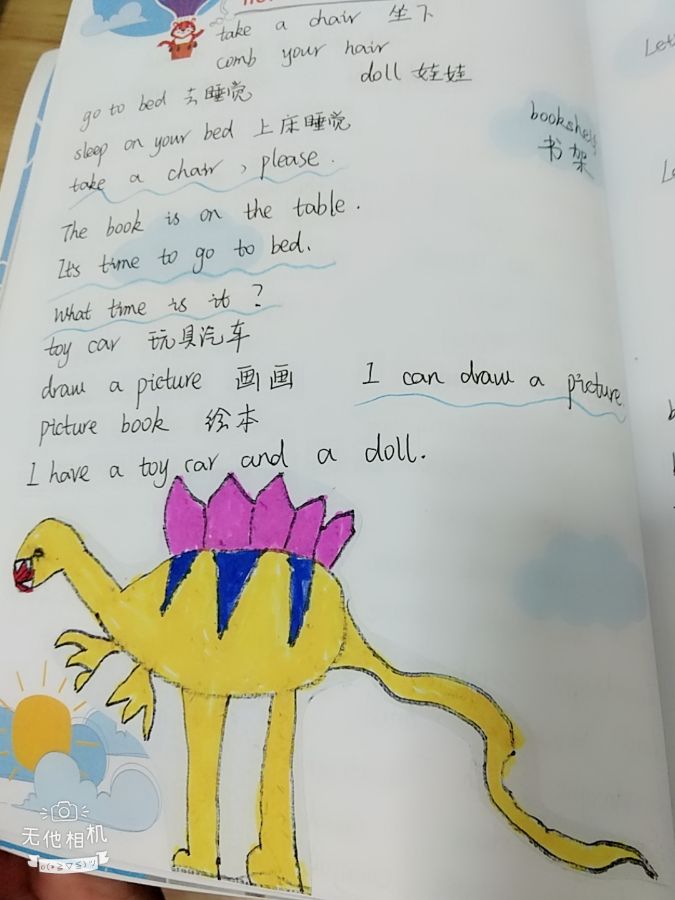 take a chair 坐下
comb your hair
doll 娃娃
go to bed 去睡觉
sleep on your bed 上床睡觉
bookshelf
书架
take a chair, please.
The book is on the table.
It's time to go to bed.
What time is it?
toy car 玩具汽车
draw a picture 画画
I can draw a picture.
picture book 绘本
I have a toy car and a doll.
无他相机